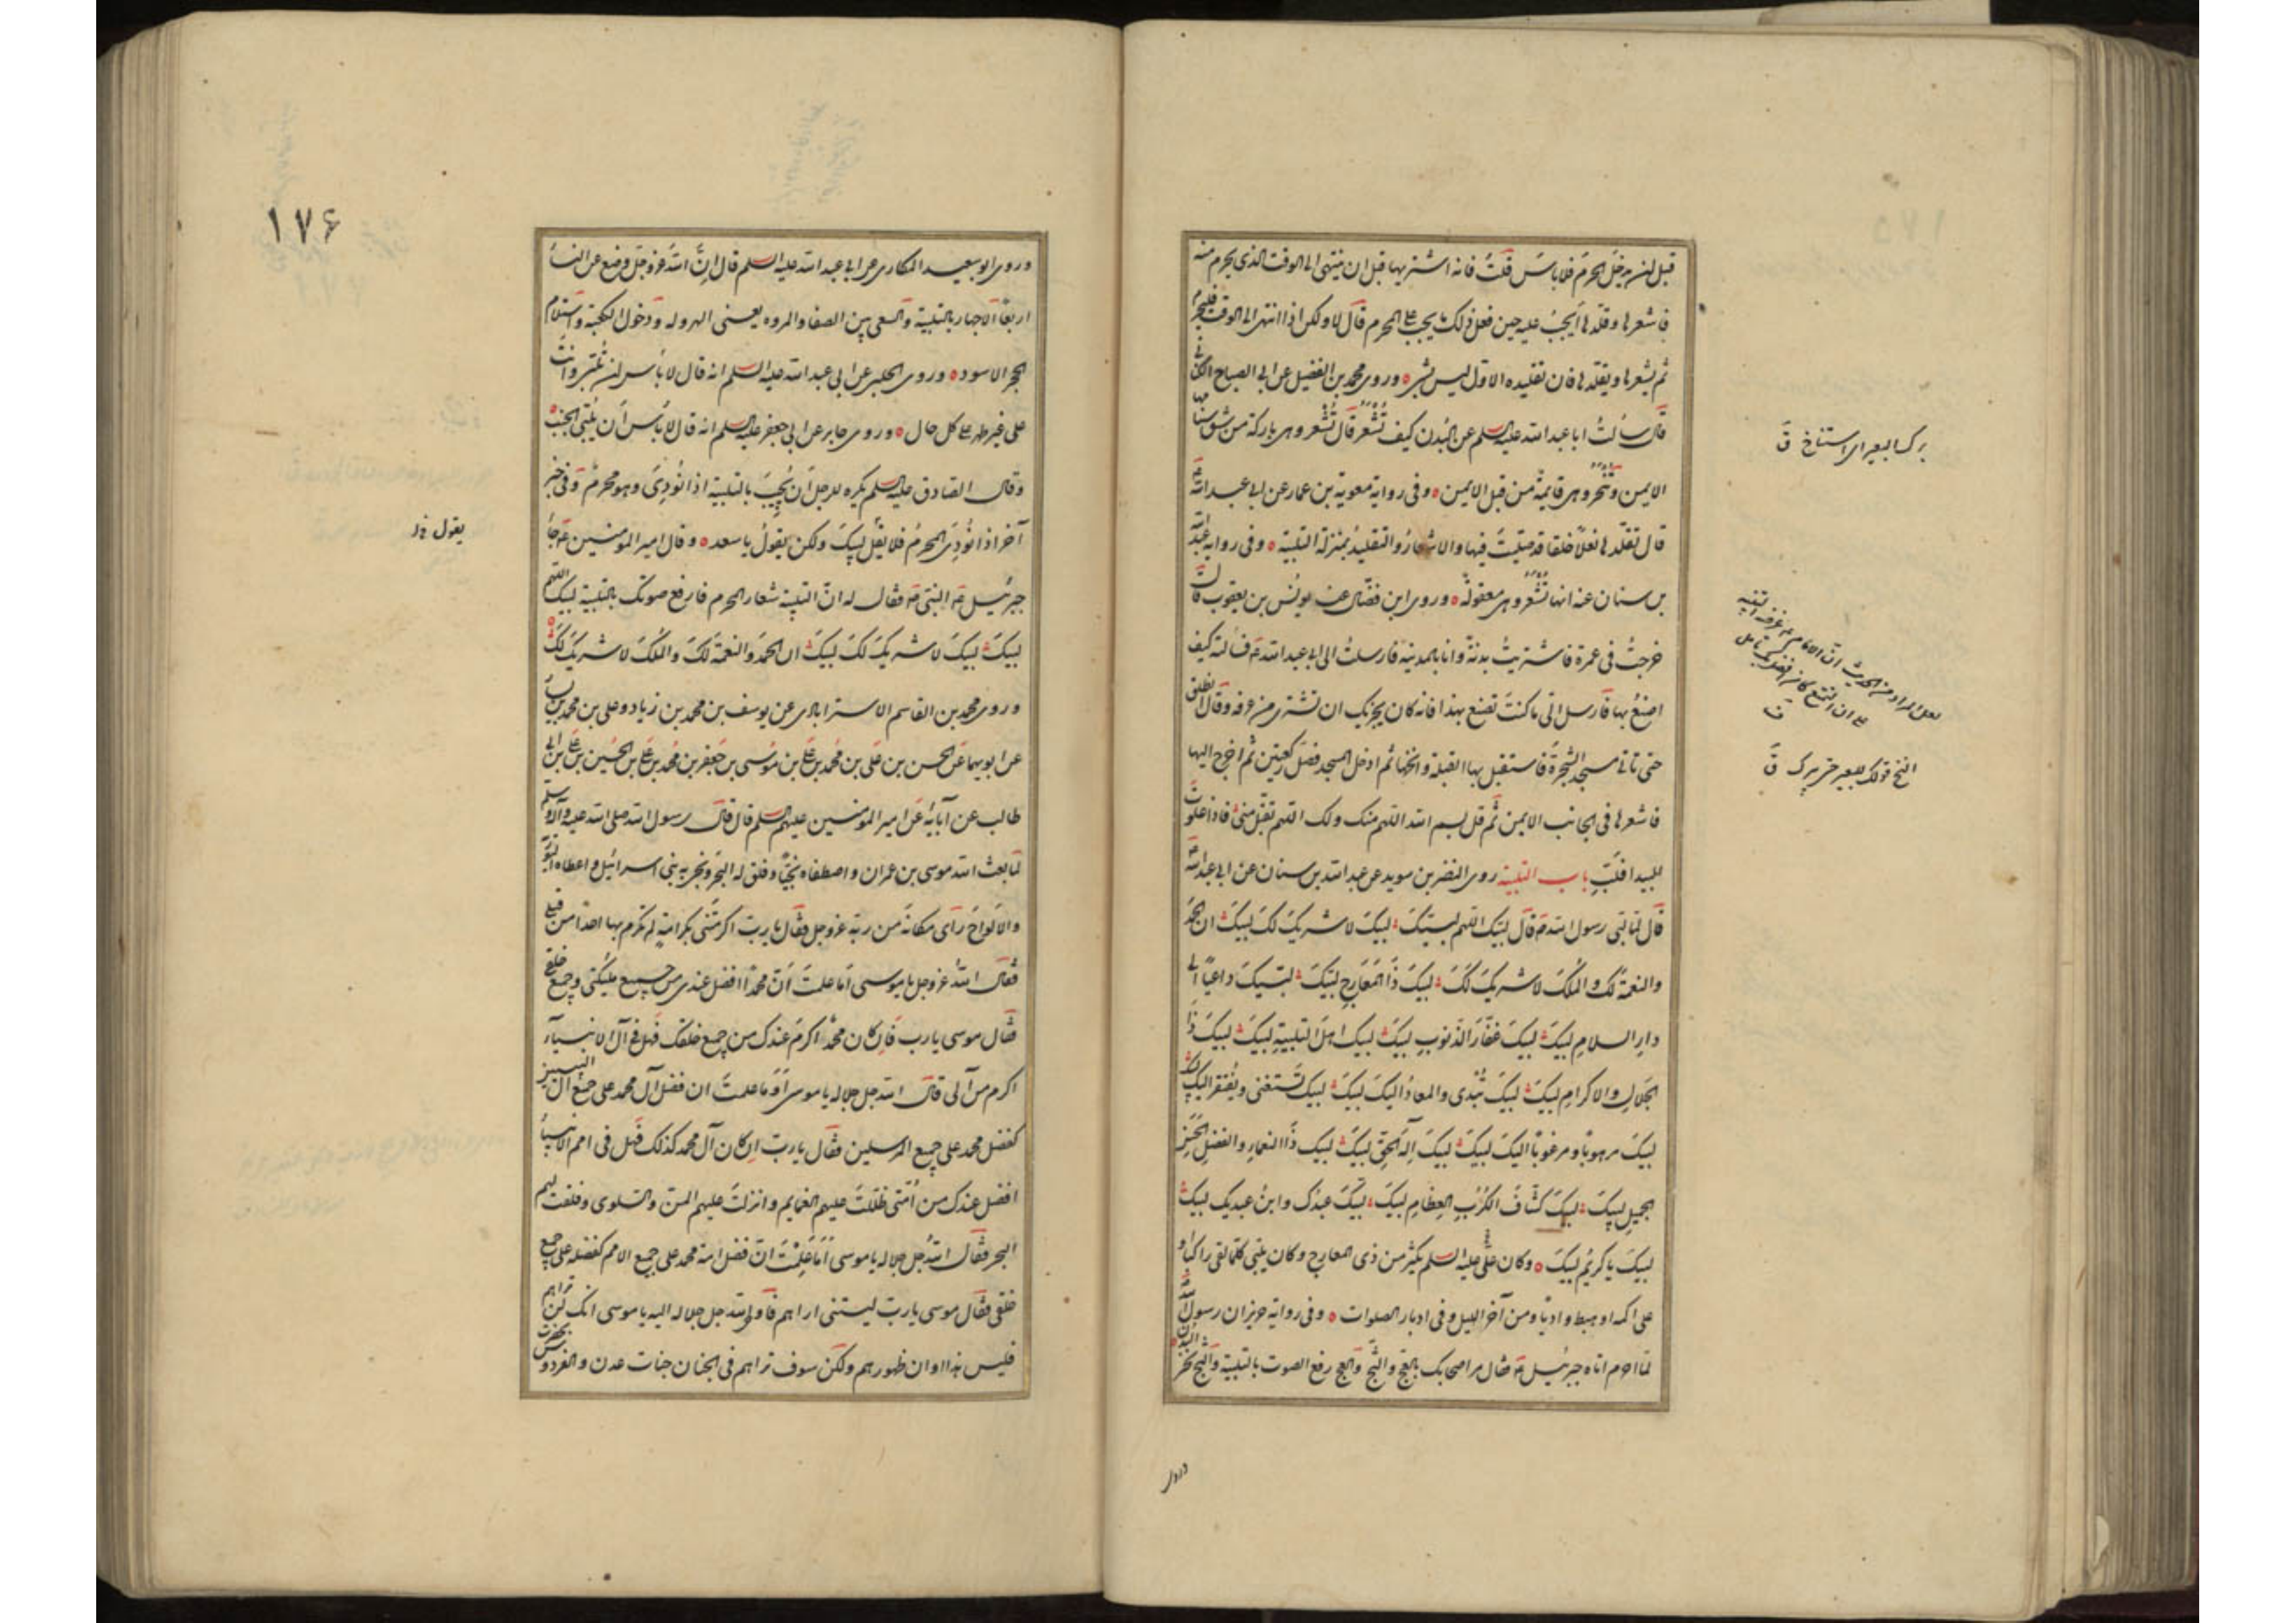 قبل ان يدخل الحرم فلا باس قلت فانه اشتريها قبل ان ينتهى الى الوقت الذى يحرم منه
فاشعرها وقلّدها أيجب عليه حين فعل ذلك ما يجب على المحرم قال لا ولكن اذا انتهى الى الوقت فليحرم
ثم يشعرها ويقلّدها فان تقليده الاول ليس بشئ وروى محمد بن الفضيل عن ابى الصباح الكنانى
قال سألت ابا عبد الله عليه السلم عن البُدن كيف تُشعر قال تُشعر وهى باركة من شق سنامها
الايمن وتُنحر وهى قايمة من قبل الايمن وفى رواية معوية بن عمار عن ابى عبد الله ع
قال تقلّدها نعلاً خلقا قد صلّيت فيها والاشعار والتقليد بمنزلة التلبية وفى رواية عبد الله
بن سنان عنه انها تُشعر وهى معقولة وروى ابن فضّال عن يونس بن يعقوب قال
خرجت فى عمرة فاشتريت بدنة وانا بالمدينه فارسلت الى ابى عبد الله ع فسالته كيف
اصنع بها فارسل الىّ ما كنت تصنع بهذا فانه كان يجزيك ان تشترى من عرفه وقال انطلق
حتى تاتى مسجد الشجرة فاستقبل بها القبلة وانخها ثم ادخل المسجد فصلّ ركعتين ثم اخرج اليها
فاشعرها فى الجانب الايمن ثم قل بسم الله اللهم منك ولك اللهم تقبّل منى فاذا علوت
البيدا فلبّ باب التلبية روى النضر بن سويد عن عبد الله بن سنان عن ابى عبد الله ع
قال لما لبّى رسول الله ص قال لبّيك اللهم لبيك لبيك لا شريك لك لبيك ان الحمد
والنعمة لك والملك لا شريك لك لبيك ذا المعارج لبّيك لبّيك داعيًا الى
دار السلام لبيك لبيك غفّار الذنوب لبيك لبيك اهل التلبية لبيك لبيك ذا
الجلال والاكرام لبيك لبيك تُبدى والمعاد اليك لبيك لبيك تستغنى ويُفتقر اليك لبيك
لبيك مرهوبًا ومرغوبًا اليك لبيك لبيك اله الحق لبيك لبيك ذا النعماء والفضل الحسن
الجميل لبيك لبيك كشّاف الكرب العظام لبيك لبّيك عبدك وابن عبديك لبيك
لبيك يا كريم لبيك وكان علىّ عليه السلم يكثر من ذى المعارج وكان يلبى كلما لقى راكبًا او
على اكمه او هبط واديًا ومن آخر الليل وفى ادبار الصلوات وفى رواية حريز ان رسول الله ص
لما احرم اتاه جبرئيل ع فقال مر اصحابك بالعجّ والثجّ والعج رفع الصوت بالتلبية والثج نحر البدن
وروى
برك البعير اى استناخ ق
ق
وروى ابو سعيد المكارى عن ابى عبد الله عليه السلم قال انّ الله عز وجل وضع عن النساء
اربعًا الاجهار بالتلبية والسعى بين الصفا والمروه يعنى الهروله ودخول الكعبة واستلام
الحجر الاسود وروى الحلبى عن ابى عبد الله عليه السلم انه قال لا بأس ان تُلبّى وانت
على غير طهر على كل حال وروى جابر عن ابى جعفر عليه السلم انه قال لا بأس أن يُلبّى الجنب
وقال الصادق عليه السلم يكره للرجل أن يُجيب بالتلبية اذا نُودِىَ وهو محرم وفى خبر
آخر اذا نُودِىَ المحرم فلا يقل لبيك ولكن يقول يا سعد وقال امير المومنين ع جاء
جبرئيل ع الى النبى ص فقال له انّ التلبية شعار المحرم فارفع صوتك بالتلبية لبيك اللهم
لبيك لبيك لا شريك لك لبيك ان الحمد والنعمة لك والملك لا شريك لك لبيك
وروى محمد بن القاسم الاسترابادى عن يوسف بن محمد بن زياد وعلى بن محمد بن يسار
عن ابويهما عن الحسن بن على بن محمد بن على بن موسى بن جعفر بن محمد بن على بن الحسين بن على بن ابى
طالب عن آبائه عن امير المؤمنين عليهم السلم قال قال رسول الله صلى الله عليه وآله وسلم
لما بعث الله موسى بن عمران واصطفاه نجيًّا وفلق له البحر ونجى به بنى اسرائيل واعطاه التورية
والالواح رأى مكانه من ربه عز وجل فقال يا ربّ اكرمتنى بكرامة لم تكرم بها احدا من قبلى
فقال الله عز وجل يا موسى اما علمت أنّ محمدًا افضل عندى من جميع مليكتى وجميع خلقى
فقال موسى يا رب فان كان محمد اكرم عندك من جميع خلقك فهل فى آل الانبياء
اكرم من آلى قال الله جل جلاله يا موسى أوما علمت ان فضل آل محمد على جميع آل النبيين
كفضل محمد على جميع المرسلين فقال يا ربّ ان كان آل محمد كذلك فهل فى امم الانبياء
افضل عندك من أمّتى ظلّلت عليهم الغمايم وانزلت عليهم المنّ والسّلوى وفلقت لهم
البحر فقال الله جل جلاله يا موسى أما علمت انّ فضل امة محمد على جميع الامم كفضله على جميع
خلقى فقال موسى يا ربّ ليتنى اراهم فأوحى الله جل جلاله اليه يا موسى انك لن تراهم
فليس هذا اوان ظهورهم ولكن سوف تراهم فى الجنان جنات عدن والفردوس بحضرت
يقول خ ل
١٧۶